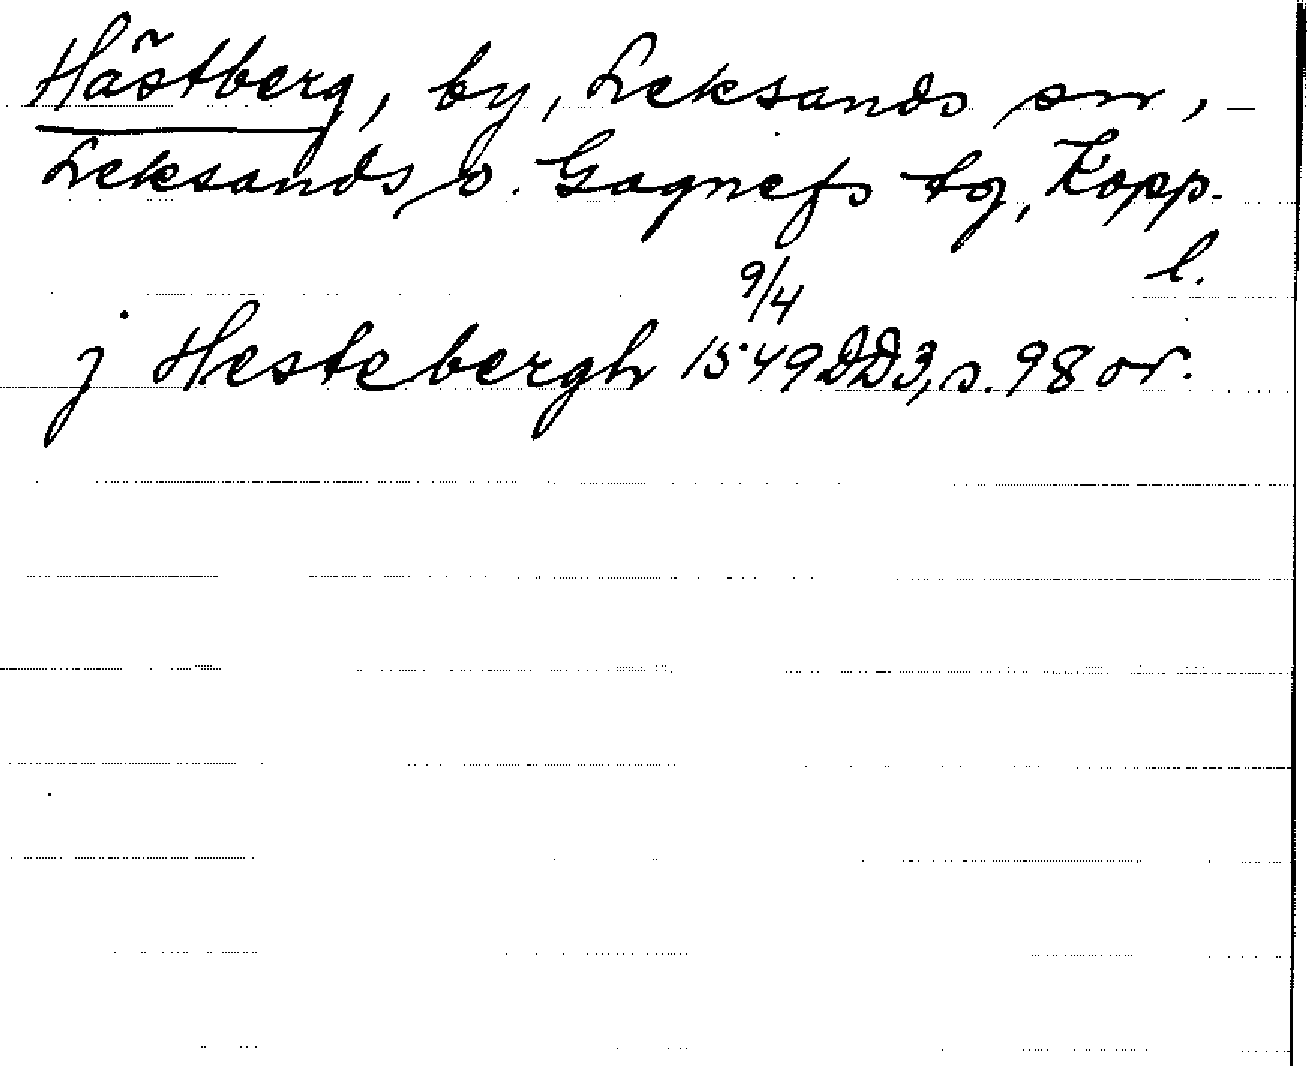 Hästberg, by, Leksands sn,
Leksands o. Gagnefs tg, Kopp.
l.
9/4
j Hestebergh 1549 DD3, s. 98 or.